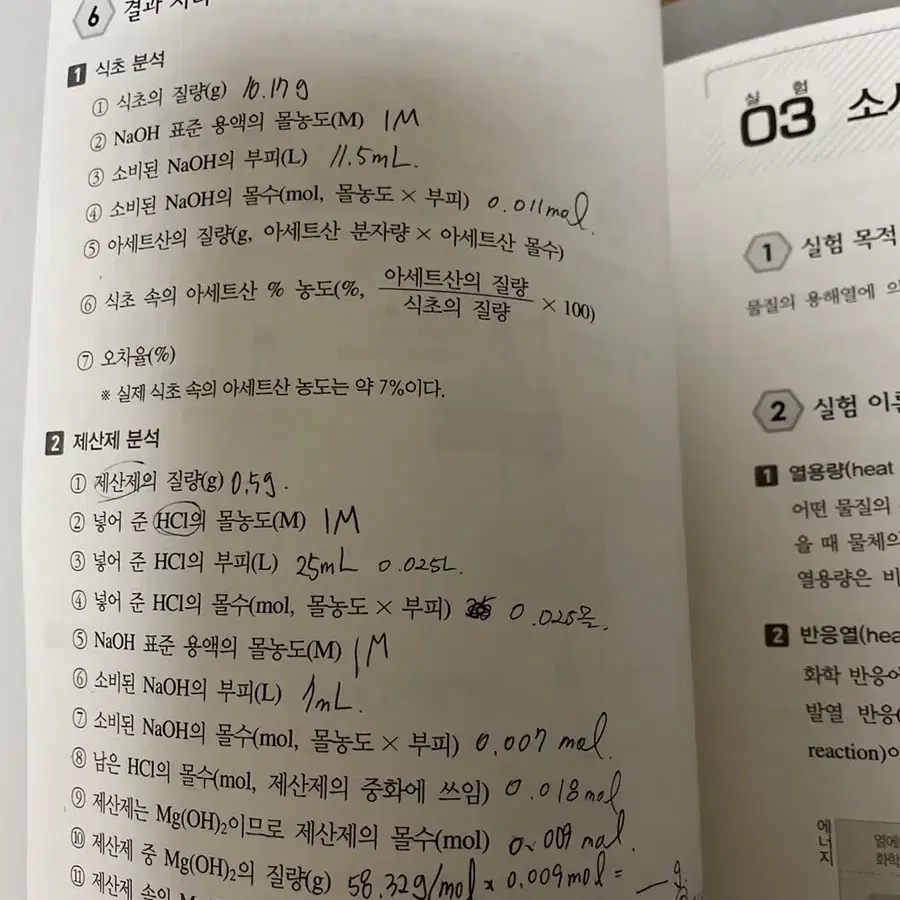 6 결과 처리
1 식초 분석
① 식초의 질량(g) 10.17g
② NaOH 표준 용액의 몰농도(M) 1M
③ 소비된 NaOH의 부피(L) 11.5mL.
④ 소비된 NaOH의 몰수(mol, 몰농도 × 부피) 0.011mol.
⑤ 아세트산의 질량(g, 아세트산 분자량 × 아세트산 몰수)
⑥ 식초 속의 아세트산 % 농도(%, 아세트산의 질량 / 식초의 질량 × 100)
⑦ 오차율(%)
※ 실제 식초 속의 아세트산 농도는 약 7%이다.
2 제산제 분석
① 제산제의 질량(g) 0.5g.
② 넣어 준 HCl의 몰농도(M) 1M
③ 넣어 준 HCl의 부피(L) 25mL 0.025L.
④ 넣어 준 HCl의 몰수(mol, 몰농도 × 부피) 0.025몰.
⑤ NaOH 표준 용액의 몰농도(M) 1M
⑥ 소비된 NaOH의 부피(L) 7mL.
⑦ 소비된 NaOH의 몰수(mol, 몰농도 × 부피) 0.007 mol.
⑧ 남은 HCl의 몰수(mol, 제산제의 중화에 쓰임) 0.018mol
⑨ 제산제는 Mg(OH)₂이므로 제산제의 몰수(mol) 0.009 mol.
⑩ 제산제 중 Mg(OH)₂의 질량(g) 58.32g/mol × 0.009mol = __g.
⑪ 제산제 속의
실험
03
1 실험 목적
물질의 용해열에
2 실험
1 열용량(heat
어떤 물질의
을 때 물체의
열용량은 비
2 반응열(hea
화학 반응에
발열 반응(
reaction)이
에너지